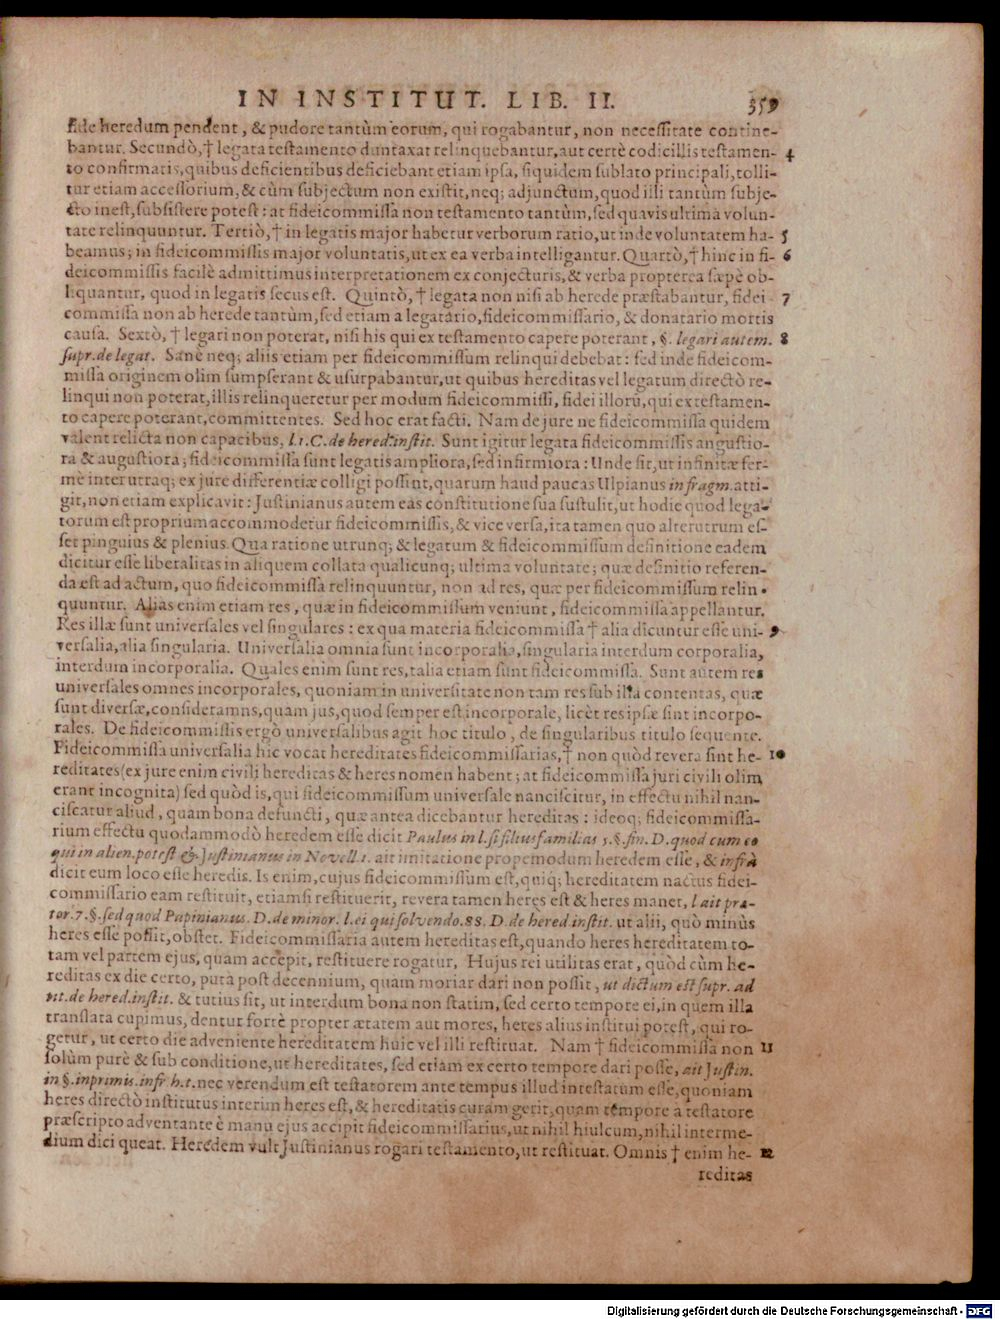 IN INSTITUT. LIB. II. 359
fide heredum pendent, & pudore tantùm eorum, qui rogabantur, non necessitate contine-
bantur. Secundò, † legata testamento duntaxat relinquebantur, aut certè codicillis testamen- 4
to confirmatis, quibus deficientibus deficiebant etiam ipsa, siquidem sublato principali, tolli-
tur etiam accessorium, & cùm subjectum non existit, neq; adjunctum, quod illi tantùm subje-
cto inest, subsistere potest: at fideicommissa non testamento tantùm, sed quavis ultima volun-
tate relinquuntur. Tertiò, † in legatis major habetur verborum ratio, ut inde voluntatem ha- 5
beamus; in fideicommissis major voluntatis, ut ex ea verba intelligantur. Quartò, † hinc in fi- 6
deicommissis facilè admittimus interpretationem ex conjecturis, & verba propterea sæpè ob-
liquantur, quod in legatis secus est. Quintò, † legata non nisi ab herede præstabantur, fidei- 7
commissa non ab herede tantùm, sed etiam a legatario, fideicommissario, & donatario mortis
causa. Sextò, † legari non poterat, nisi his qui ex testamento capere poterant, §. legari autem. 8
supr. de legat. Sanè neq; aliis etiam per fideicommissum relinqui debebat: sed inde fideicom-
missa originem olim sumpserant & usurpabantur, ut quibus hereditas vel legatum directò re-
linqui non poterat, illis relinqueretur per modum fideicommissi, fidei illorū, qui ex testamen-
to capere poterant, committentes. Sed hoc erat facti. Nam de jure ne fideicommissa quidem
valent relicta non capacibus, l. 1. C. de hered. instit. Sunt igitur legata fideicommissis angustio-
ra & augustiora; fideicommissa sunt legatis ampliora, sed infirmiora: Unde fit, ut infinitæ fer-
mè inter utraq; ex jure differentiæ colligi possint, quarum haud paucas Ulpianus in fragm. atti-
git, non etiam explicavit: Justinianus autem eas constitutione sua sustulit, ut hodie quod lega-
torum est proprium accommodetur fideicommissis, & vice versa, ita tamen quo alterutrum es-
set pinguius & plenius. Qua ratione utrunq; & legatum & fideicommissum definitione eadem
dicitur esse liberalitas in aliquem collata qualicunq; ultima voluntate; quæ definitio referen-
da est ad actum, quo fideicommissa relinquuntur, non ad res, quæ per fideicommissum relin-
quuntur. Alias enim etiam res, quæ in fideicommissum veniunt, fideicommissa appellantur.
Res illæ sunt universales vel singulares: ex qua materia fideicommissa † alia dicuntur esse uni- 9
versalia, alia singularia. Universalia omnia sunt incorporalia, singularia interdum corporalia,
interdum incorporalia. Quales enim sunt res, talia etiam sunt fideicommissa. Sunt autem res
universales omnes incorporales, quoniam in universitate non tam res sub illa contentas, quæ
sunt diversæ, consideramus, quam jus, quod semper est incorporale, licèt res ipsæ sint incorpo-
rales. De fideicommissis ergò universalibus agit hoc titulo, de singularibus titulo sequente.
Fideicommissa universalia hic vocat hereditates fideicommissarias, † non quòd revera sint he- 10
reditates (ex jure enim civili hereditas & heres nomen habent; at fideicommissa juri civili olim
erant incognita) sed quòd is, qui fideicommissum universale nanciscitur, in effectu nihil nan-
ciscatur aliud, quam bona defuncti, quæ antea dicebantur hereditas: ideoq; fideicommissa-
rium effectu quodammodò heredem esse dicit Paulus in l. si filiusfamilias 5. §. fin. D. quod cum eo
qui in alien. potest & Justinianus in Novell. 1. ait imitatione propemodum heredem esse, & infrà
dicit eum loco esse heredis. Is enim, cujus fideicommissum est, quiq; hereditatem nactus fidei-
commissario eam restituit, etiamsi restituerit, revera tamen heres est & heres manet, l ait præ-
tor. 7. §. sed quod Papinianus. D. de minor. l. ei qui solvendo. 88. D. de hered. instit. ut alii, quò minùs
heres esse possit, obstet. Fideicommissaria autem hereditas est, quando heres hereditatem to-
tam vel partem ejus, quam accepit, restituere rogatur, Hujus rei utilitas erat, quòd cùm he-
reditas ex die certo, puta post decennium, quam moriar dari non possit, ut dictum est supr. ad
tit. de hered. instit. & tutius sit, ut interdum bona non statim, sed certo tempore ei, in quem illa
translata cupimus, dentur fortè propter ætatem aut mores, heres alius institui potest, qui ro-
getur, ut certo die adveniente hereditatem huic vel illi restituat. Nam † fideicommissa non 11
solùm purè & sub conditione, ut hereditates, sed etiam ex certo tempore dari posse, ait Justin.
in §. inprimis. infr h.t. nec verendum est testatorem ante tempus illud intestatum esse, quoniam
heres directò institutus interim heres est, & hereditatis curam gerit, quam tempore a testatore
præscripto adventante è manu ejus accipit fideicommissarius, ut nihil hiulcum, nihil interme-
dium dici queat. Heredem vult Justinianus rogari testamento, ut restituat. Omnis † enim he- 12
reditas
Digitalisierung gefördert durch die Deutsche Forschungsgemeinschaft - DFG